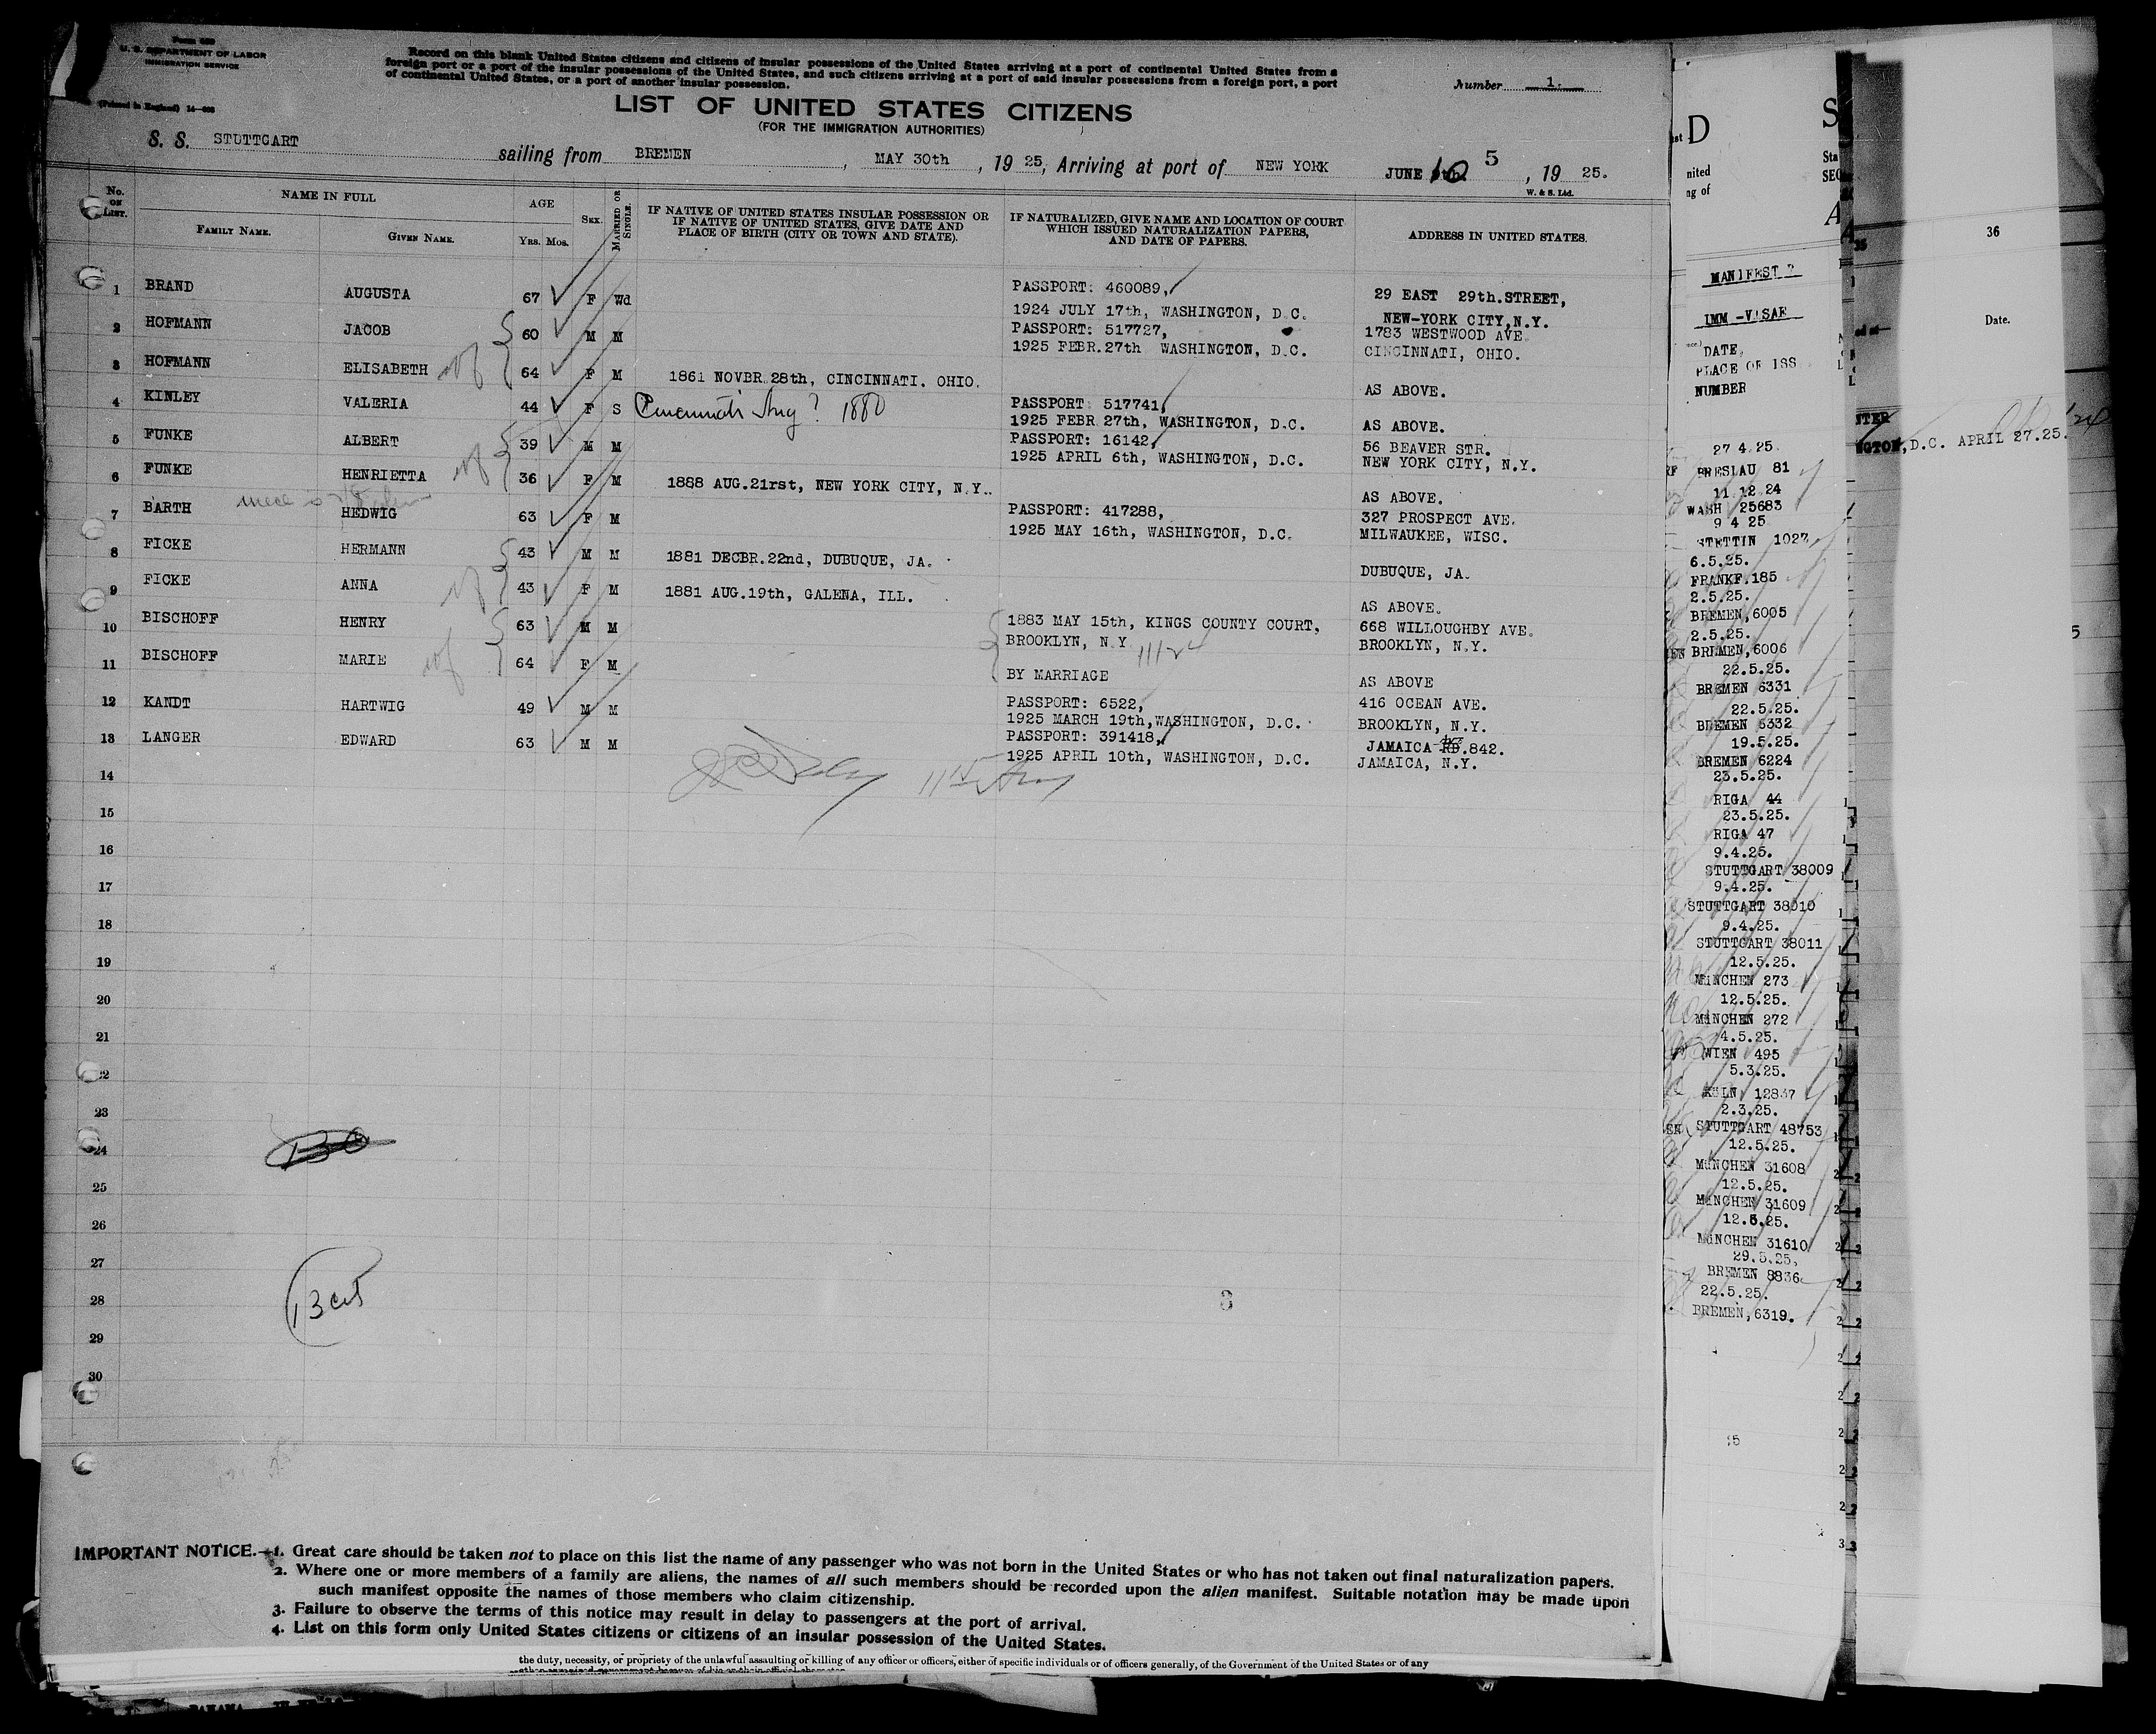 Form 630
U. S. DEPARTMENT OF LABOR
IMMIGRATION SERVICE
(Printed in England) 14—
Record on this blank United States citizens and citizens of insular possessions of the United States arriving at a port of continental United States from a
foreign port or a port of the insular possessions of the United States, and such citizens arriving at a port of said insular possessions from a foreign port, a port
of continental United States, or a port of another insular possession.
Number 1.
LIST OF UNITED STATES CITIZENS
(FOR THE IMMIGRATION AUTHORITIES)
S. S. STUTTGART sailing from BREMEN, MAY 30th, 1925, Arriving at port of NEW YORK JUNE 10 5, 1925.
W. & S. Ltd.
No. ON LIST. NAME IN FULL AGE SEX. MARRIED OR SINGLE. IF NATIVE OF UNITED STATES INSULAR POSSESSION OR IF NATIVE OF UNITED STATES, GIVE DATE AND PLACE OF BIRTH (CITY OR TOWN AND STATE). IF NATURALIZED, GIVE NAME AND LOCATION OF COURT WHICH ISSUED NATURALIZATION PAPERS, AND DATE OF PAPERS. ADDRESS IN UNITED STATES.
FAMILY NAME. GIVEN NAME. Yrs. Mos.
1 BRAND AUGUSTA 67 F Wd PASSPORT: 460089, 29 EAST 29th.STREET,
1924 JULY 17th, WASHINGTON, D.C. NEW-YORK CITY, N.Y.
2 HOFMANN JACOB 60 M M PASSPORT: 517727, 1783 WESTWOOD AVE.
1925 FEBR.27th WASHINGTON, D.C. CINCINNATI, OHIO.
3 HOFMANN ELISABETH 64 F M 1861 NOVBR.28th, CINCINNATI. OHIO. AS ABOVE.
4 KINLEY VALERIA 44 F S Cincinnati Aug ? 1880 PASSPORT: 517741,
1925 FEBR 27th, WASHINGTON, D.C. AS ABOVE.
5 FUNKE ALBERT 39 M M PASSPORT: 16142, 56 BEAVER STR.
1925 APRIL 6th, WASHINGTON, D.C. NEW YORK CITY, N.Y.
6 FUNKE HENRIETTA 36 F M 1888 AUG.21rst, NEW YORK CITY, N.Y. AS ABOVE.
7 BARTH HEDWIG 63 F M PASSPORT: 417288, 327 PROSPECT AVE.
1925 MAY 16th, WASHINGTON, D.C. MILWAUKEE, WISC.
8 FICKE HERMANN 43 M M 1881 DECBR.22nd, DUBUQUE, JA. DUBUQUE, JA.
9 FICKE ANNA 43 F M 1881 AUG.19th, GALENA, ILL. AS ABOVE.
10 BISCHOFF HENRY 63 M M 1883 MAY 15th, KINGS COUNTY COURT, 668 WILLOUGHBY AVE.
BROOKLYN, N.Y. BROOKLYN, N.Y.
11 BISCHOFF MARIE 64 F M BY MARRIAGE AS ABOVE
12 KANDT HARTWIG 49 M M PASSPORT: 6522, 416 OCEAN AVE.
1925 MARCH 19th, WASHINGTON, D.C. BROOKLYN, N.Y.
13 LANGER EDWARD 63 M M PASSPORT: 391418, JAMAICA RD.842.
1925 APRIL 10th, WASHINGTON, D.C. JAMAICA, N.Y.
14
15
16
17
18
19
20
21
22
23
24
25
26
27
28
29
30
13 cit
8
IMPORTANT NOTICE.—1. Great care should be taken not to place on this list the name of any passenger who was not born in the United States or who has not taken out final naturalization papers.
2. Where one or more members of a family are aliens, the names of all such members should be recorded upon the alien manifest. Suitable notation may be made upon
such manifest opposite the names of those members who claim citizenship.
3. Failure to observe the terms of this notice may result in delay to passengers at the port of arrival.
4. List on this form only United States citizens or citizens of an insular possession of the United States.
the duty, necessity, or propriety of the unlawful assaulting or killing of any officer or officers, either of specific individuals or of officers generally, of the Government of the United States or of any
D S
nited
ng of
MANIFEST
IMM -VISAE
DATE,
PLACE OF ISS
NUMBER
27 4.25.
BRESLAU 81
11 12 24
WASH 25683
9 4 25
STETTIN 1027
6.5.25.
FRANKF.185
2.5.25.
BREMEN,6005
2.5.25.
BREMEN,6006
22.5.25.
BREMEN 6331
22.5.25.
BREMEN 6332
19.5.25.
BREMEN 6224
23.5.25.
RIGA 44
23.5.25.
RIGA 47
9.4.25.
STUTTGART 38009
9.4.25.
STUTTGART 38010
9.4.25.
STUTTGART 38011
12.5.25.
MüNCHEN 273
12.5.25.
MüNCHEN 272
4.5.25.
WIEN 495
5.3.25.
KöLN 12837
2.3.25.
STUTTGART 48753
12.5.25.
MüNCHEN 31608
12.5.25.
MüNCHEN 31609
12.5.25.
MüNCHEN 31610
29.5.25.
BREMEN 8836
22.5.25.
BREMEN,6319.
36
Date.
NGTON, D.C. APRIL 27.25.